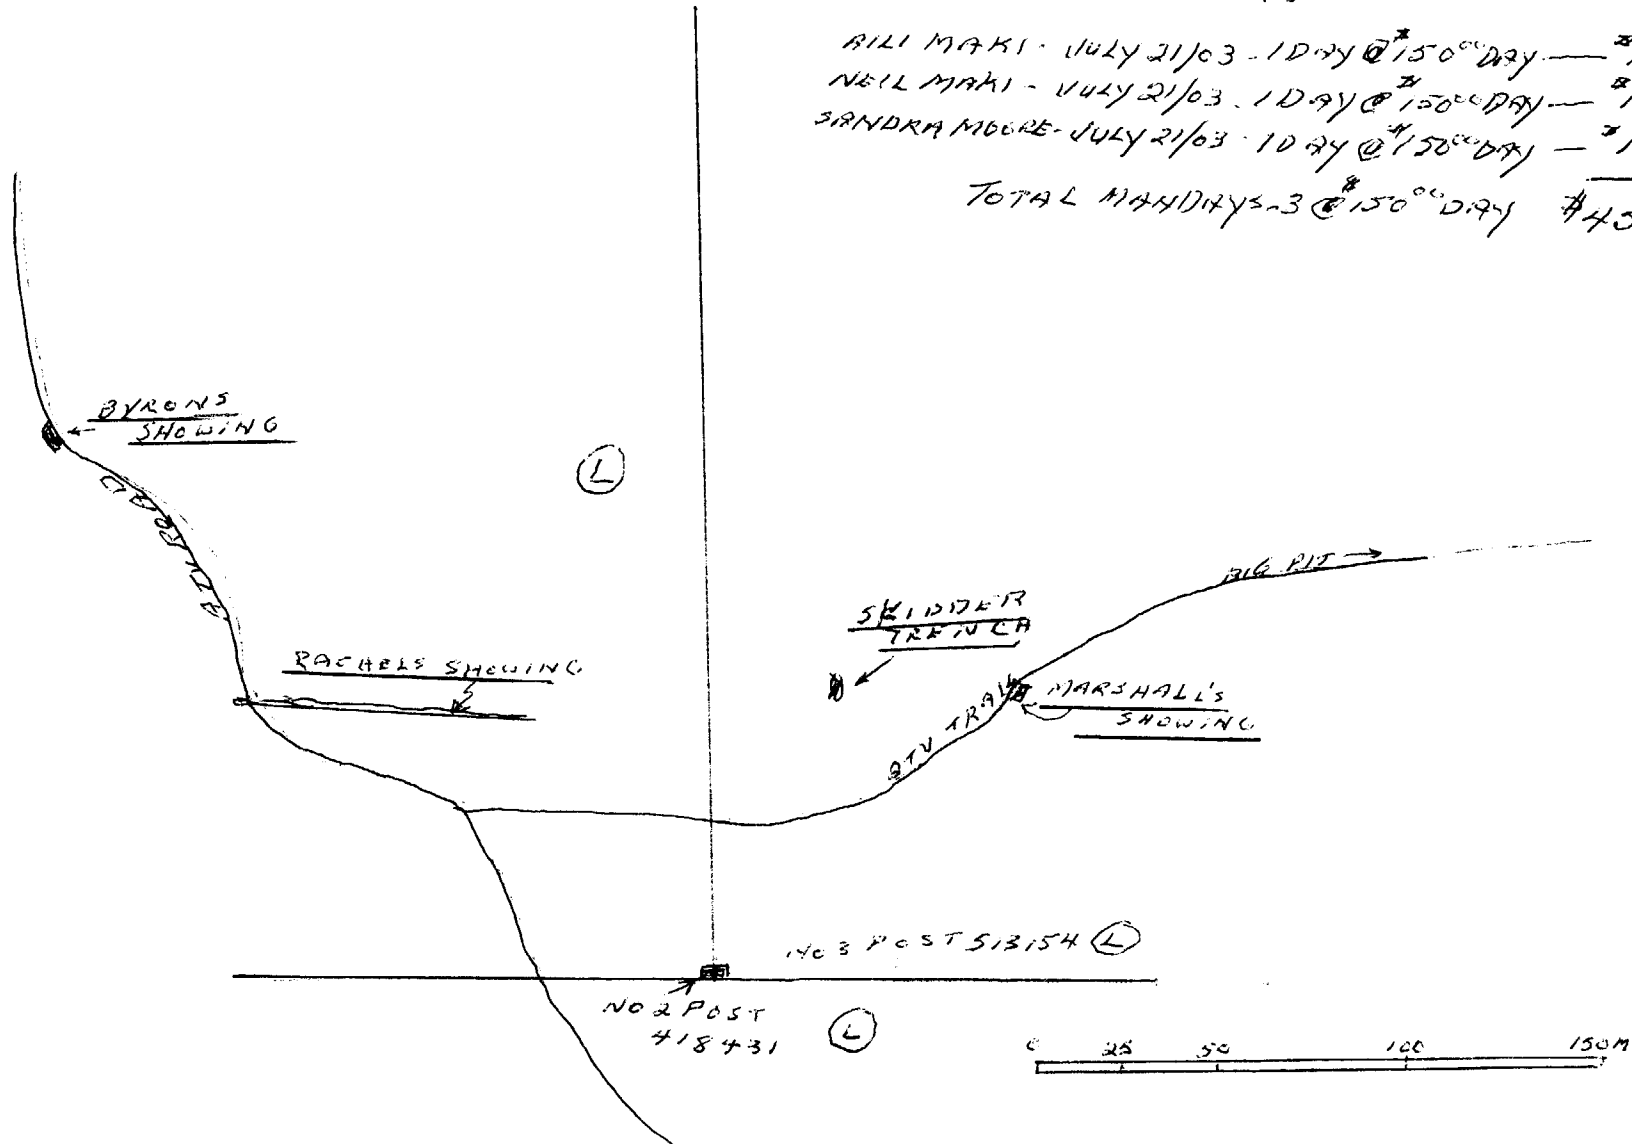 AILI MAKI - JULY 21/03 - 1 DAY @ $150°° DAY — $1
NEIL MAKI - JULY 21/03 - 1 DAY @ $150°° DAY — $1
SANDRA MOORE - JULY 21/03 - 1 DAY @ $150°° DAY — $1
TOTAL MANDAYS - 3 @ $150°° DAY $45
BYRONS
SHOWING
L
ROAD
BIG PIT →
SKIDDER
TRENCH
RACHELS SHOWING
ATV TRAIL
MARSHALL'S
SHOWING
NO 3 POST 513154 L
NO 2 POST
418431
L
0 25 50 100 150M